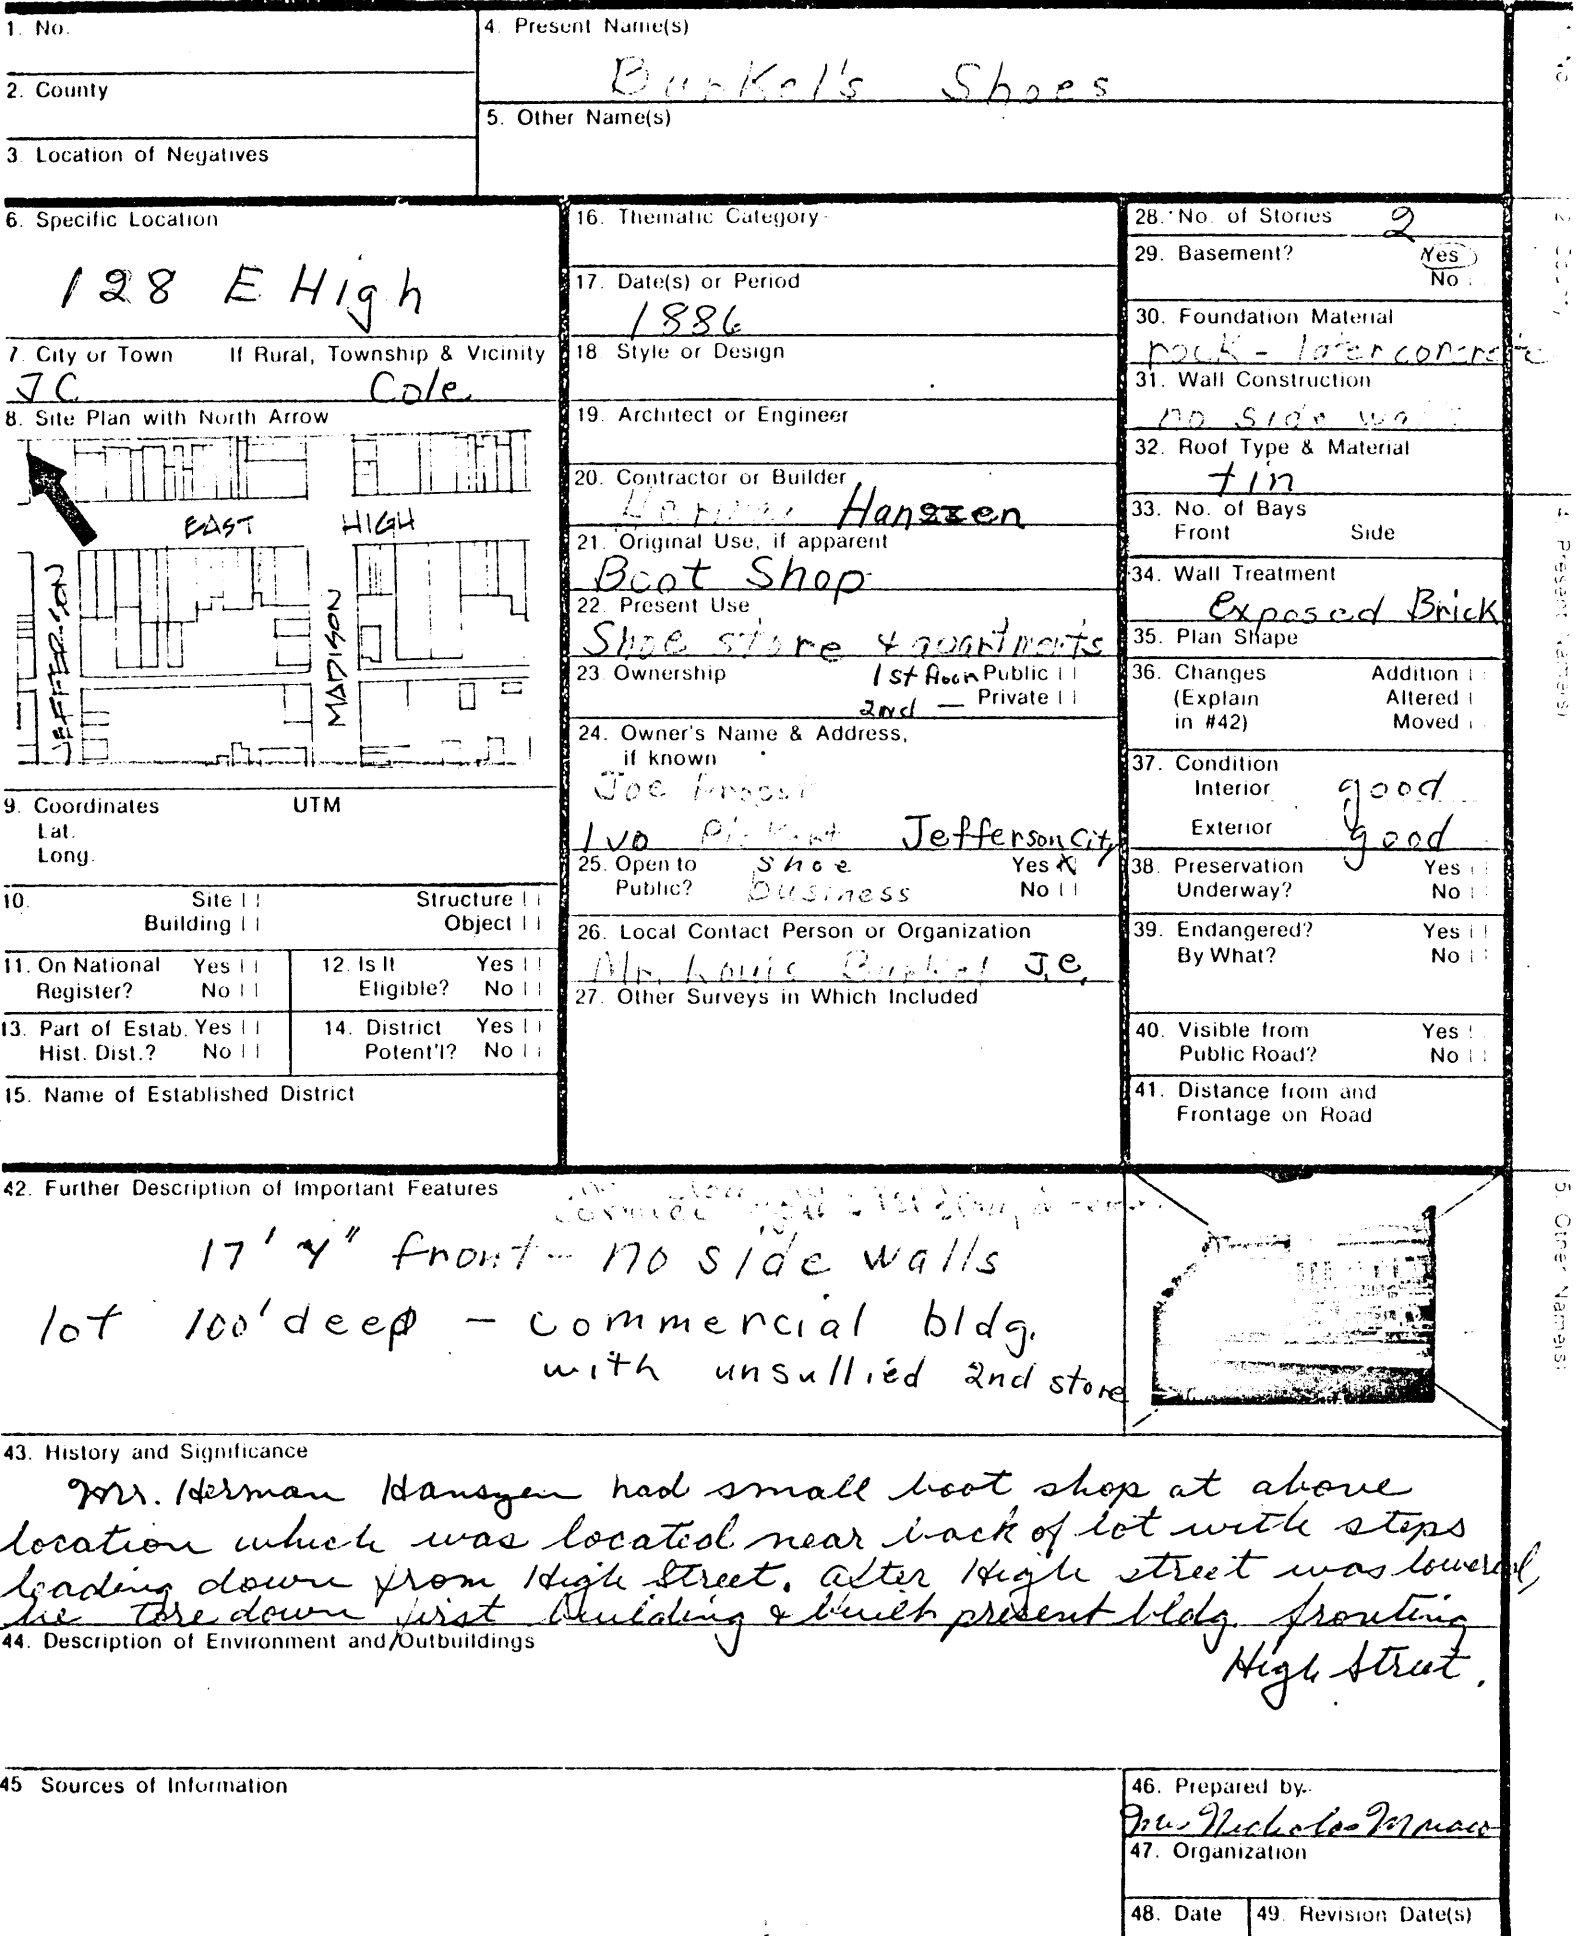 1. No.
4. Present Name(s)
Bunkel's Shoes
2. County
5. Other Name(s)
3. Location of Negatives
6. Specific Location
128 E High
7. City or Town If Rural, Township & Vicinity
JC Cole
8. Site Plan with North Arrow
EAST HIGH
JEFFERSON
MADISON
9. Coordinates UTM
Lat.
Long.
10. Site Structure
Building Object
11. On National Register? Yes No
12. Is It Eligible? Yes No
13. Part of Estab. Hist. Dist.? Yes No
14. District Potent'l? Yes No
15. Name of Established District
16. Thematic Category
17. Date(s) or Period
1886
18. Style or Design
19. Architect or Engineer
20. Contractor or Builder
Hanszen
21. Original Use, if apparent
Boot Shop
22. Present Use
Shoe store & apartments
23. Ownership 1st floor Public
2nd — Private
24. Owner's Name & Address,
if known
Joe
Ivo Jefferson City
25. Open to Shoe Yes X
Public? business No
26. Local Contact Person or Organization
Mr. Louis Bunkel J.C.
27. Other Surveys in Which Included
28. No. of Stories 2
29. Basement? Yes
No
30. Foundation Material
rock - later concrete
31. Wall Construction
no side wall
32. Roof Type & Material
tin
33. No. of Bays
Front Side
34. Wall Treatment
Exposed Brick
35. Plan Shape
36. Changes Addition
(Explain Altered
in #42) Moved
37. Condition
Interior good
Exterior good
38. Preservation Yes
Underway? No
39. Endangered? Yes
By What? No
40. Visible from Yes
Public Road? No
41. Distance from and
Frontage on Road
42. Further Description of Important Features
17' 4" front - no side walls
lot 100' deep - commercial bldg.
with unsullied 2nd store
43. History and Significance
Mr. Herman Hanszen had small boot shop at above
location which was located near back of lot with steps
leading down from High Street. After High street was lowered,
he tore down first building & built present bldg. fronting
High Street.
44. Description of Environment and Outbuildings
45 Sources of Information
46. Prepared by
Nicholas
47. Organization
48. Date
49. Revision Date(s)
1. No.
4. Present Name(s)
5. Other Name(s)